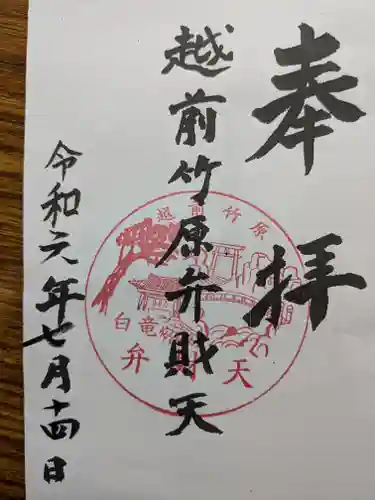 奉拝
越前竹原弁財天
令和六年七月十四日
越前竹原
白竜
弁
天